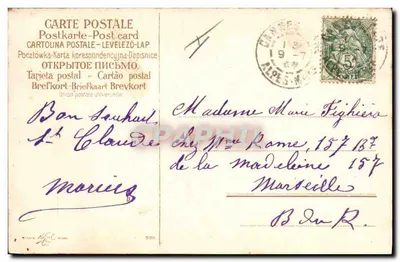 CARTE POSTALE
Postkarte-Post card
CARTOLINA POSTALE-LEVELEZŐ-LAP
Pocztówka-Karta korespondencyjna-Dopisnice
ОТКРЫТОЕ ПИСЬМО
Tarjeta postal - Cartão postal
Brefkort-Briefkaart Brevkort
Union postale universelle
CANNES
19-7
ALPES
5
Bon souhait
St Claude
Marius
Madame Marie Fighiera
chez Rome, 157 Bd
de la madeleine 157
Marseille
B du R.